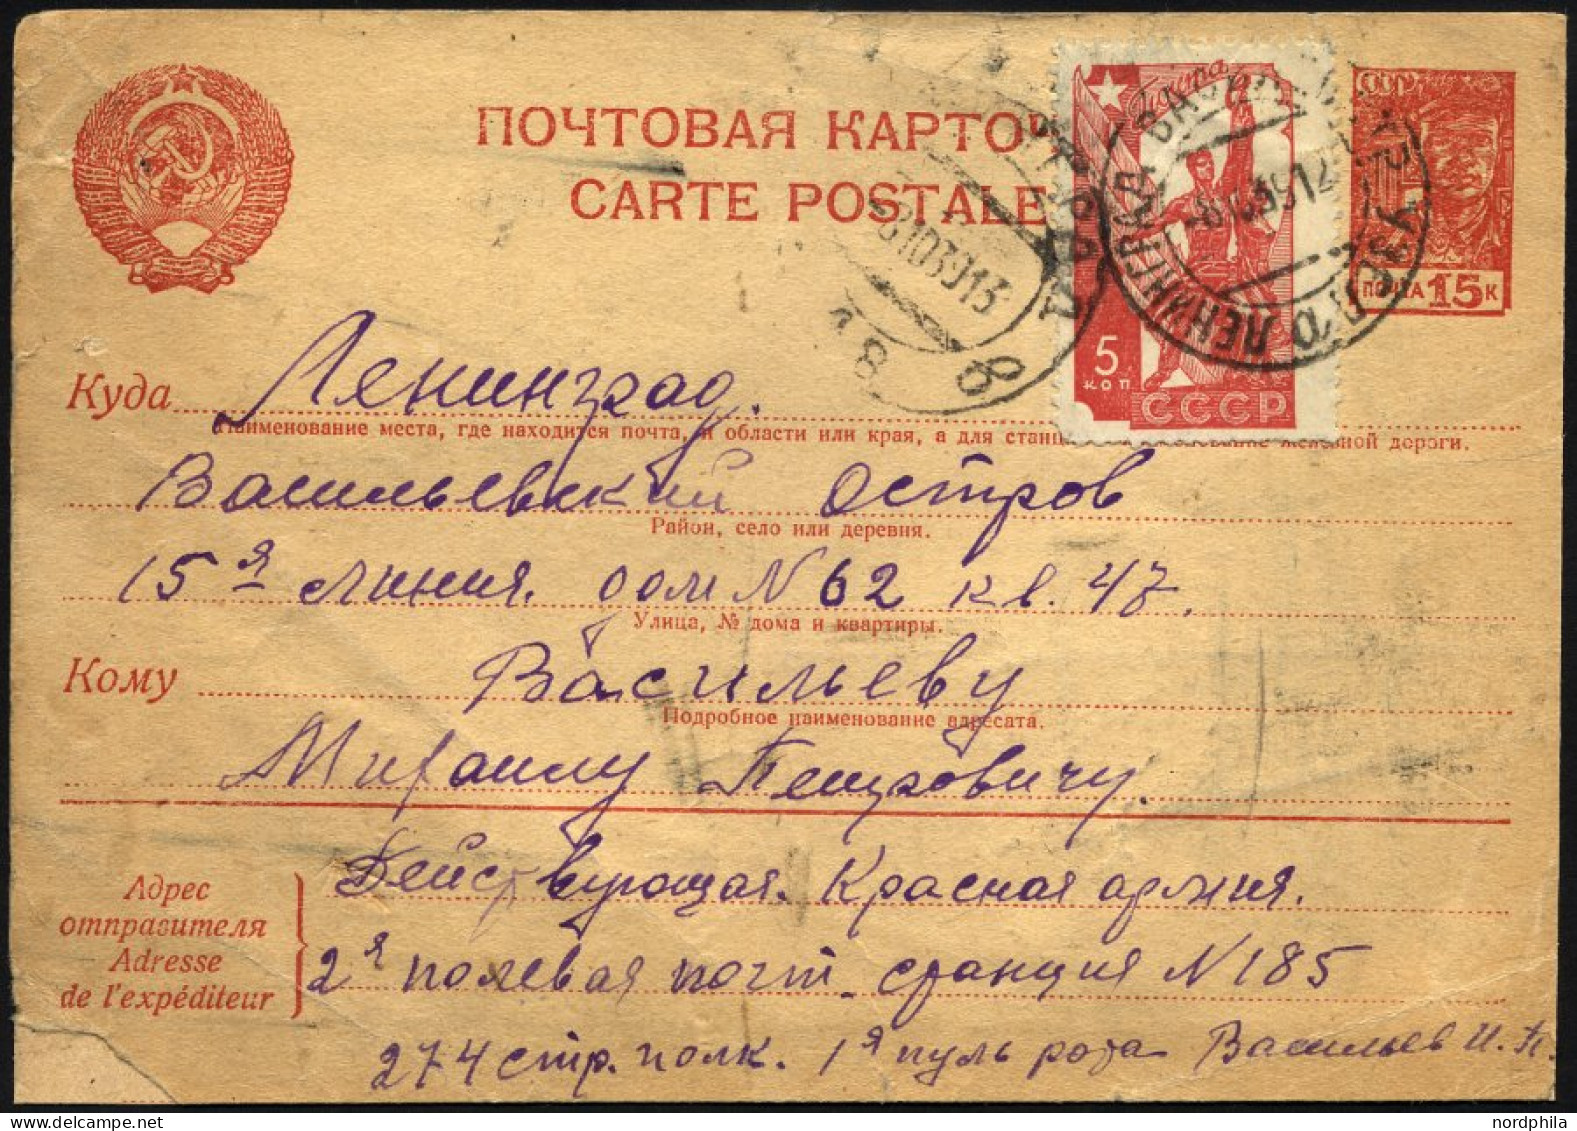 ПОЧТОВАЯ КАРТОЧ
CARTE POSTALE
Почта
5
КОП
СССР
СССР
ПОЧТА 15 К
ЛЕНИНГРАД
8 10 39 12
8 10 39 13
8
Куда Ленинград.
Наименование места, где находится почта, и области или края, а для станц железной дороги.
Васильевский Остров
Район, село или деревня.
15я линия. дом N 62 кв. 47.
Улица, № дома и квартиры.
Кому Васильеву
Подробное наименование адресата.
Михаилу Петровичу.
Действующая. Красная армия.
Адрес
отправителя
Adresse
de l'expéditeur
2я полевая почт. станция N 185
274 стр. полк. 1я пуль рота Васильев И. П.
nordphila